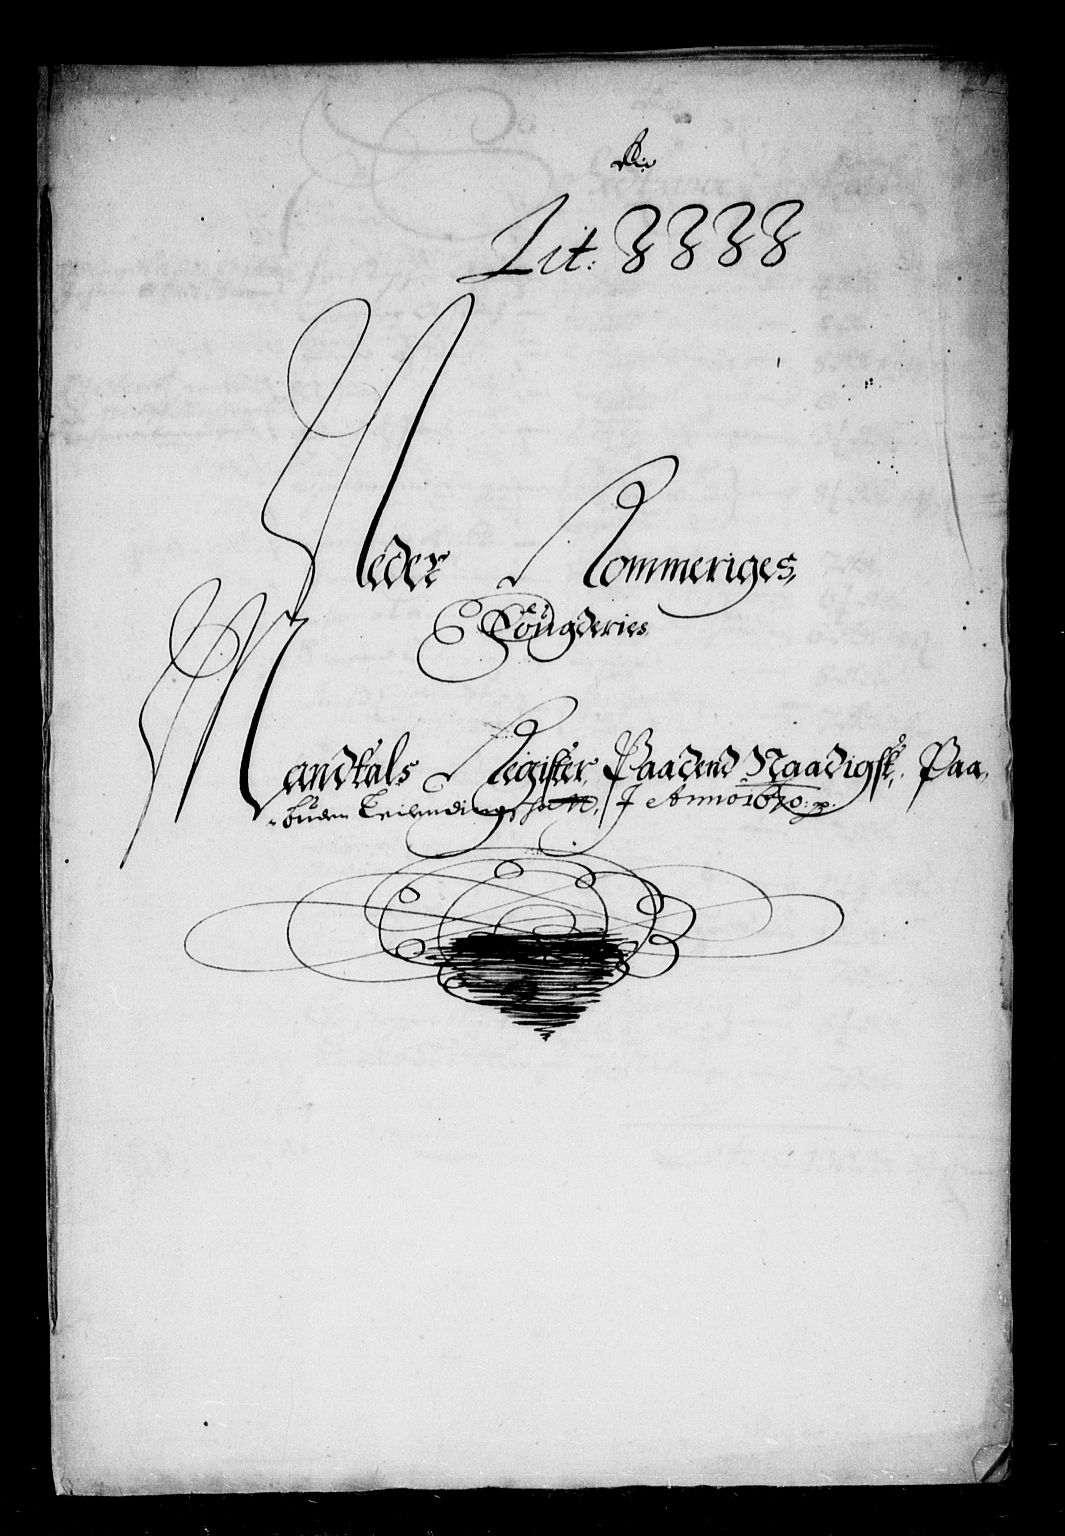 Lit: 8888
Neder Rommeriges,
Fougderies
Mandtals Register, Paa dend Naadigst, Paa,
-buden I Anno 1670: p: